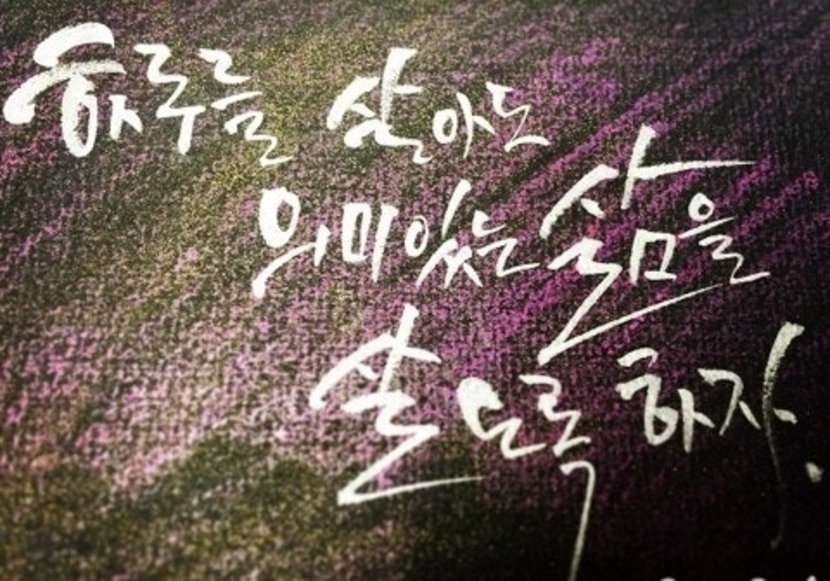 하루를 살아도
의미있는 삶을
살도록 하자.